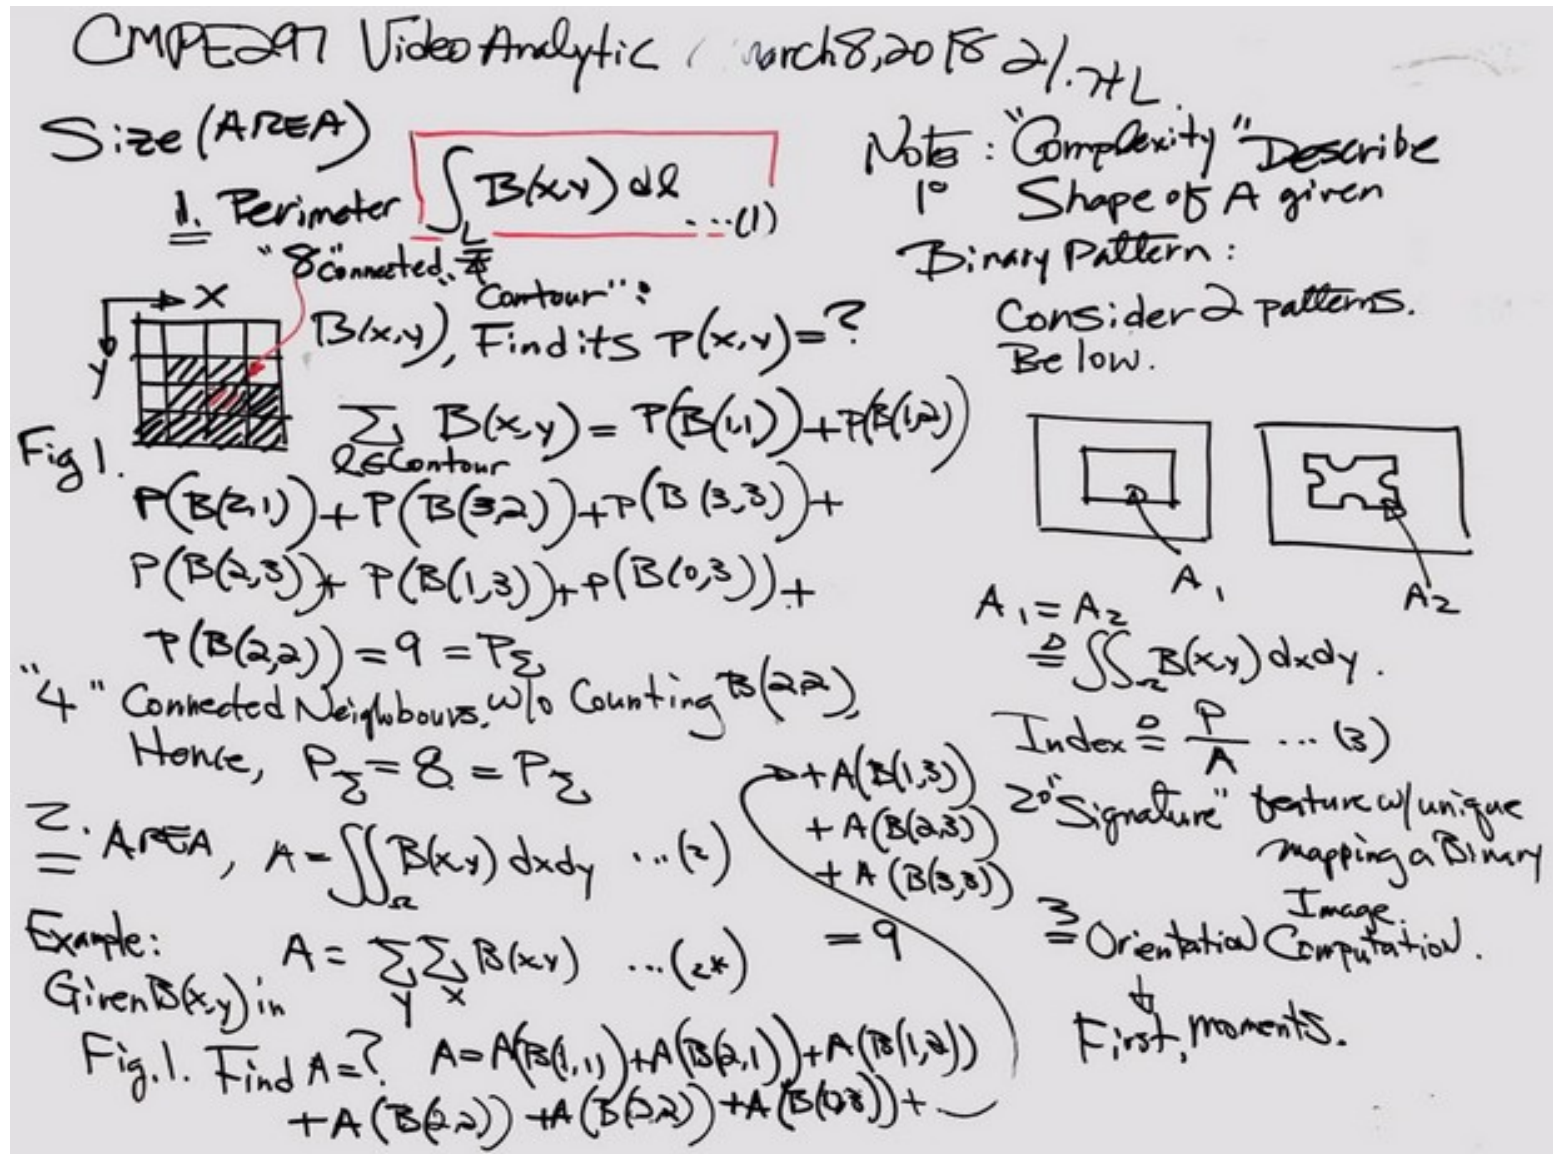 CMPE297 Video Analytic, March 8, 2018 2/. HL.
Size (AREA)
1. Perimeter ∫_L B(x,y) dl ...(1)
"8" Connected.
Contour":
X
Y
B(x,y), Find its P(x,y)=?
Fig 1.
∑_{l∈Contour} B(x,y) = P(B(1,1))+P(B(1,2))
P(B(2,1))+P(B(3,2))+P(B(3,3))+
P(B(2,3))+P(B(1,3))+P(B(0,3))+
P(B(2,2))=9=P_Σ
"4" Connected Neighbours. w/o Counting B(2,2),
Hence, P_Σ=8=P_Σ
2. AREA, A=∬_Ω B(x,y) dxdy ...(2)
Example: A= ∑_Y ∑_X B(x,y) ...(2*)
Given B(x,y) in
Fig. 1. Find A=? A=A(B(1,1)+A(B(2,1))+A(B(1,2))
+A(B(2,2))+A(B(3,2))+A(B(0,3))+
+A(B(1,3))
+A(B(2,3))
+A(B(3,3))
=9
Note: "Complexity" Describe
1° Shape of A given
Binary Pattern:
Consider 2 patterns.
Below.
A1
A2
A1=A2
≜ ∬_Ω B(x,y) dxdy.
Index ≜ P/A ...(3)
2° "Signature" feature w/ unique
mapping a Binary
Image.
3 Orientation Computation.
First, moments.